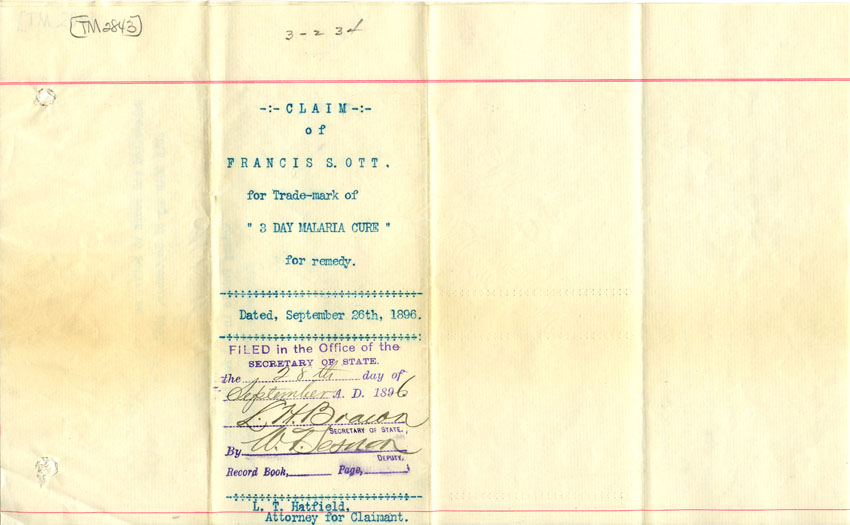 [TM2843]
3-2 34
-:- CLAIM -:-
of
FRANCIS S. OTT.
for Trade-mark of
" 3 DAY MALARIA CURE "
for remedy.
Dated, September 26th, 1896.
FILED in the Office of the
SECRETARY OF STATE.
the 28th day of
September A. D. 1896
L. H. Brown
SECRETARY OF STATE.
By W. T.
DEPUTY.
Record Book, Page,
L. T. Hatfield.
Attorney for Claimant.